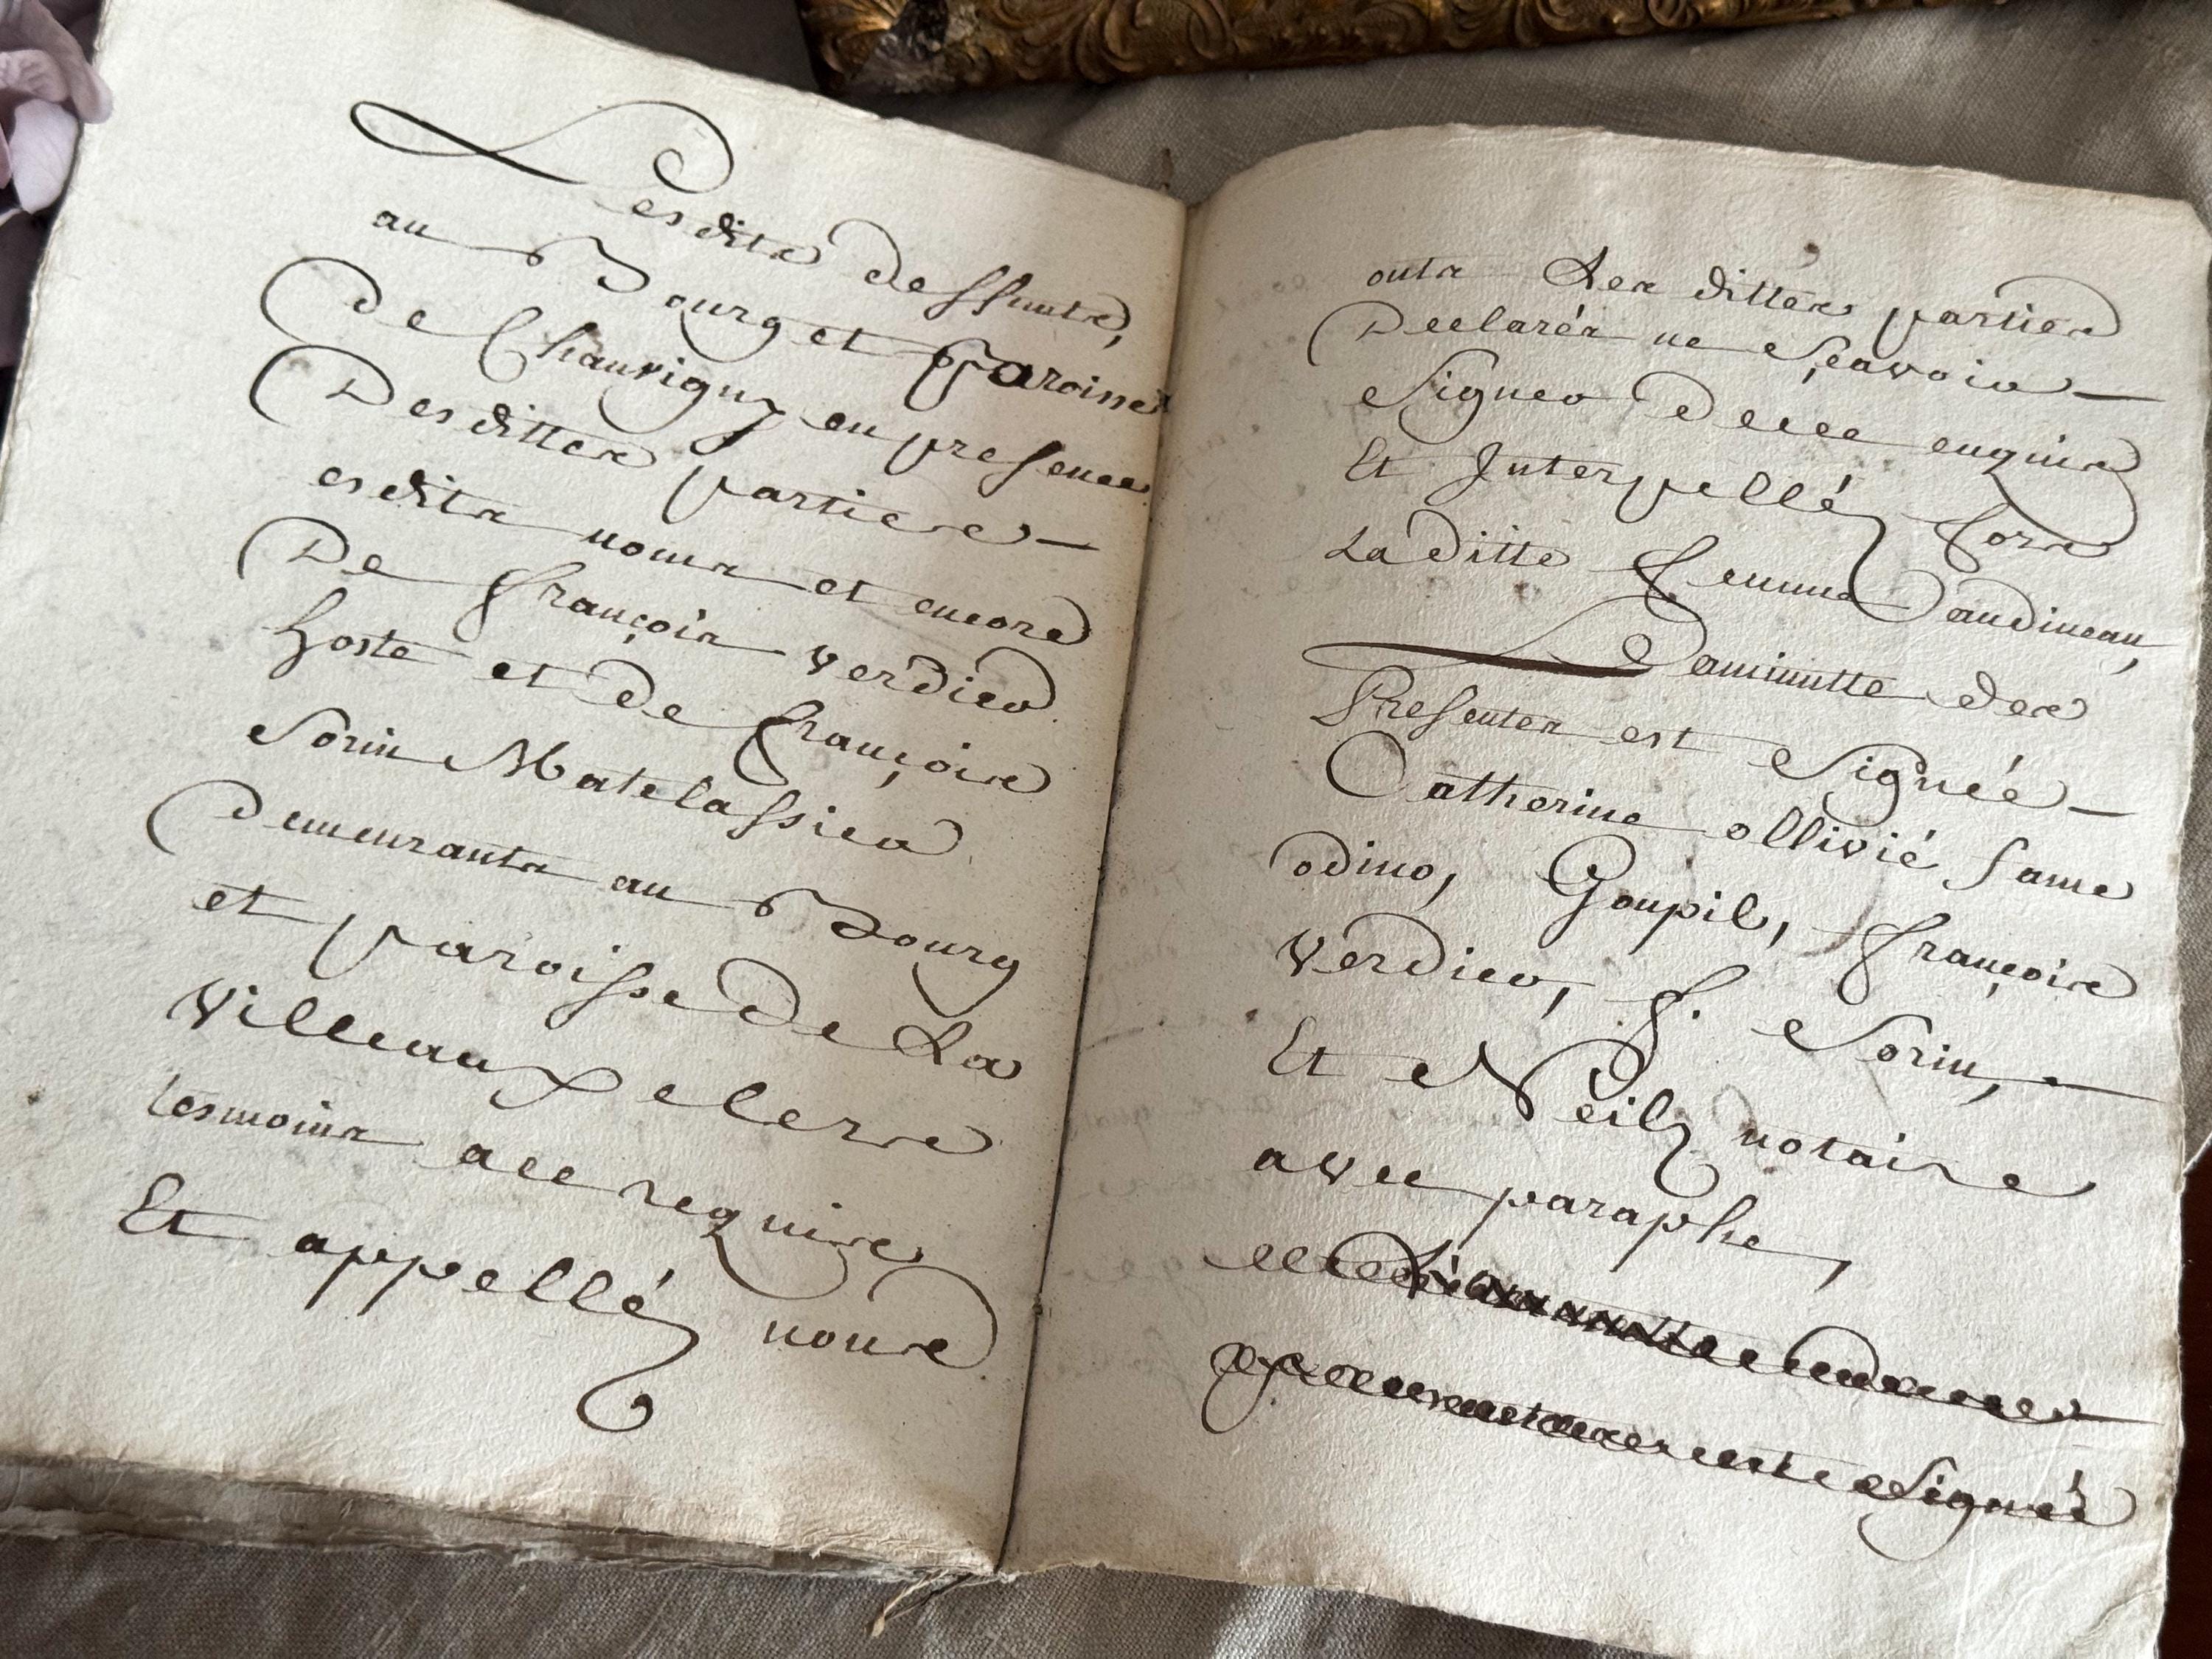 Lesdits deffunts,
au Bourg et Paroisse
de Chauvigny en presence
Des dittes parties
esdits noms et encore
De françois verdier
hoste et de françois
Sorin Matelassier
demeurants au Bourg
et paroisse de La
Villeauxclercs
tesmoins a ce requis
Et appellés nous
onts Les dittes parties
Declarés ne Sçavoir
Signer De ce enquis
Et Interpellés fors
La ditte femme Gaudineau,
La minutte des
Presentes est Signée
Catherine ollivié fame
odino, Goupil, françois
verdier, f. Sorin,
Et Neilz notaire
avec paraphe,
Signée